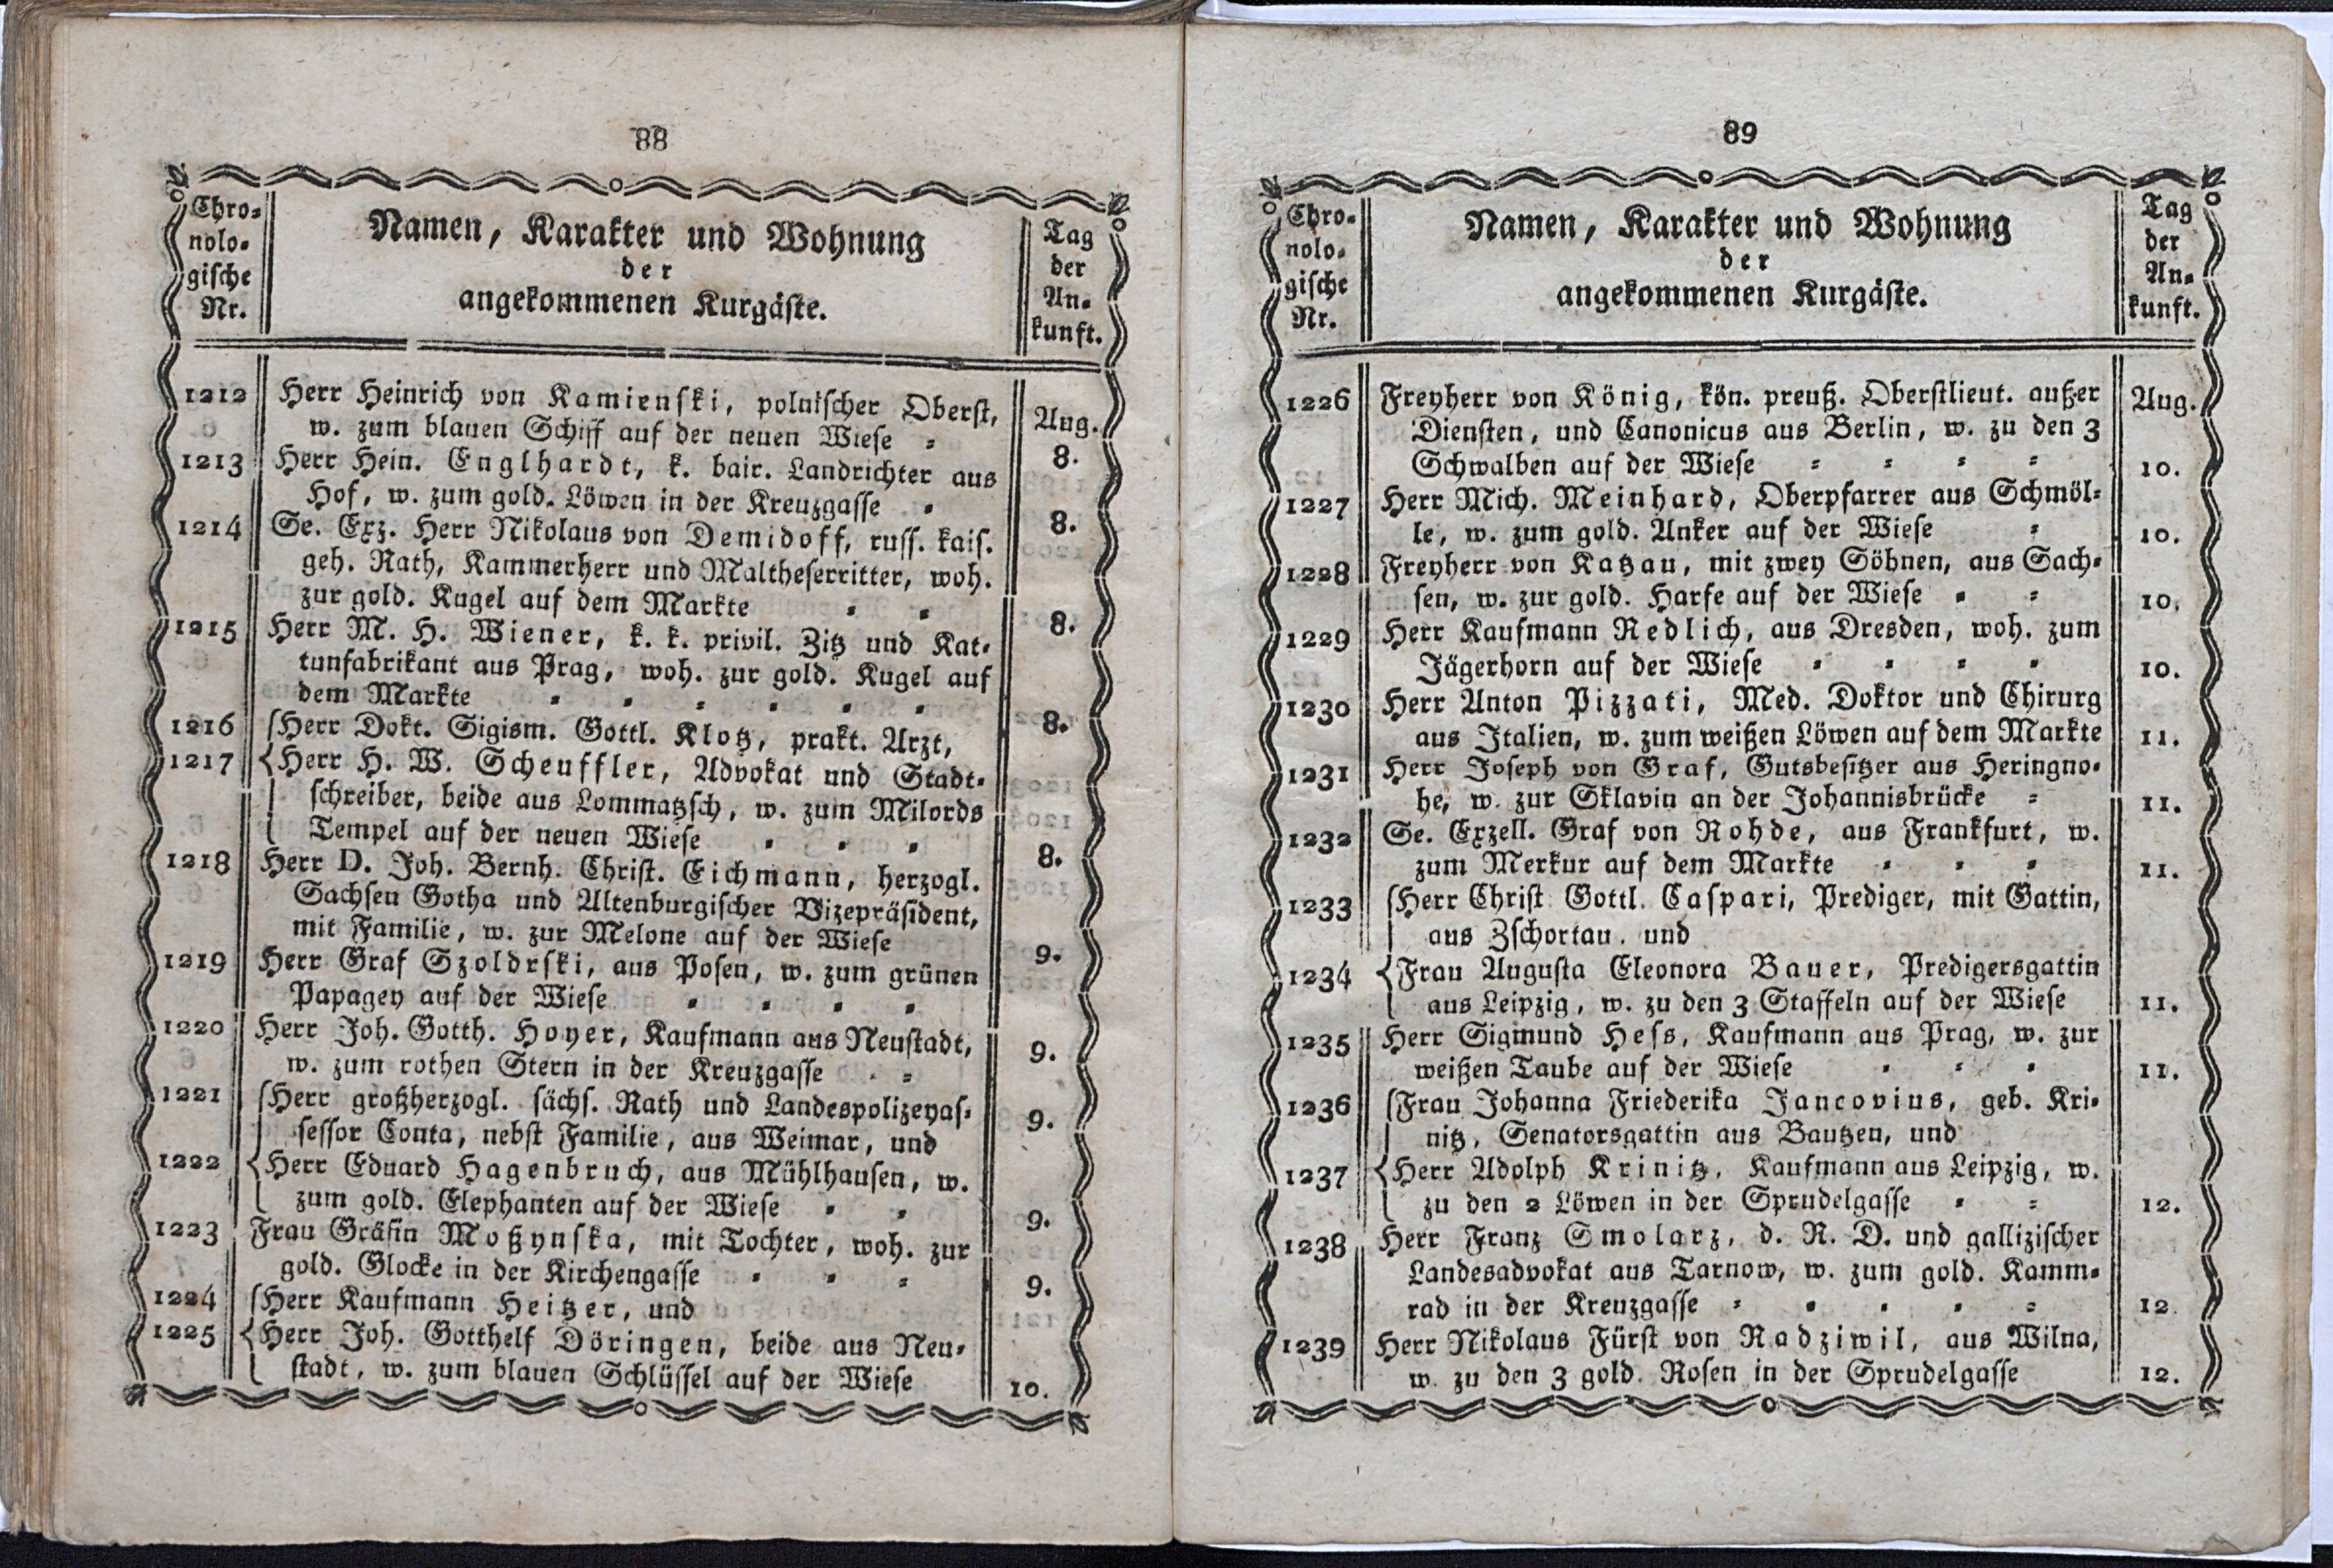 88
Chro-
nolo-
gische
Nr.
Namen, Karakter und Wohnung
der
angekommenen Kurgäste.
Tag
der
An-
kunft.
1212 Herr Heinrich von Kamienski, polnischer Oberst, Aug.
w. zum blauen Schiff auf der neuen Wiese = 8.
1213 Herr Hein. Englhardt, k. bair. Landrichter aus
Hof, w. zum gold. Löwen in der Kreuzgasse = 8.
1214 Se. Exz. Herr Nikolaus von Demidoff, russ. kais.
geh. Rath, Kammerherr und Maltheserritter, woh.
zur gold. Kugel auf dem Markte = = 8.
1215 Herr M. H. Wiener, k. k. privil. Zitz und Kat-
tunfabrikant aus Prag, woh. zur gold. Kugel auf
dem Markte = = = = = = 8.
1216 Herr Dokt. Sigism. Gottl. Klotz, prakt. Arzt,
1217 Herr H. W. Scheuffler, Advokat und Stadt-
schreiber, beide aus Lommatzsch, w. zum Milords
Tempel auf der neuen Wiese = = = 8.
1218 Herr D. Joh. Bernh. Christ. Eichmann, herzogl.
Sachsen Gotha und Altenburgischer Vizepräsident,
mit Familie, w. zur Melone auf der Wiese 9.
1219 Herr Graf Szoldrski, aus Posen, w. zum grünen
Papagey auf der Wiese = = = = 9.
1220 Herr Joh. Gotth. Hoyer, Kaufmann aus Neustadt,
w. zum rothen Stern in der Kreuzgasse = = 9.
1221 Herr großherzogl. sächs. Rath und Landespolizeyas-
sessor Conta, nebst Familie, aus Weimar, und
1222 Herr Eduard Hagenbruch, aus Mühlhausen, w.
zum gold. Elephanten auf der Wiese = = 9.
1223 Frau Gräfin Moßynska, mit Tochter, woh. zur
gold. Glocke in der Kirchengasse = = = 9.
1224 Herr Kaufmann Heitzer, und
1225 Herr Joh. Gotthelf Döringen, beide aus Neu-
stadt, w. zum blauen Schlüssel auf der Wiese 10.
89
Chro-
nolo-
gische
Nr.
Namen, Karakter und Wohnung
der
angekommenen Kurgäste.
Tag
der
An-
kunft.
1226 Freyherr von König, kön. preuß. Oberstlieut. außer Aug.
Diensten, und Canonicus aus Berlin, w. zu den 3
Schwalben auf der Wiese = = = = 10.
1227 Herr Mich. Meinhard, Oberpfarrer aus Schmöl-
le, w. zum gold. Anker auf der Wiese = 10.
1228 Freyherr von Katzau, mit zwey Söhnen, aus Sach-
sen, w. zur gold. Harfe auf der Wiese = = 10.
1229 Herr Kaufmann Redlich, aus Dresden, woh. zum
Jägerhorn auf der Wiese = = = = 10.
1230 Herr Anton Pizzati, Med. Doktor und Chirurg
aus Italien, w. zum weißen Löwen auf dem Markte 11.
1231 Herr Joseph von Graf, Gutsbesitzer aus Heringno-
he, w. zur Sklavin an der Johannisbrücke = 11.
1232 Se. Exzell. Graf von Rohde, aus Frankfurt, w.
zum Merkur auf dem Markte = = = 11.
1233 Herr Christ. Gottl. Caspari, Prediger, mit Gattin,
aus Zschortau, und
1234 Frau Augusta Eleonora Bauer, Predigersgattin
aus Leipzig, w. zu den 3 Staffeln auf der Wiese 11.
1235 Herr Sigmund Hess, Kaufmann aus Prag, w. zur
weißen Taube auf der Wiese = = = 11.
1236 Frau Johanna Friederika Jancovius, geb. Kri-
nitz, Senatorsgattin aus Bautzen, und
1237 Herr Adolph Krinitz, Kaufmann aus Leipzig, w.
zu den 2 Löwen in der Sprudelgasse = = 12.
1238 Herr Franz Smolarz, d. R. D. und gallizischer
Landesadvokat aus Tarnow, w. zum gold. Kamm-
rad in der Kreuzgasse = = = = = 12
1239 Herr Nikolaus Fürst von Radziwil, aus Wilna,
w. zu den 3 gold. Rosen in der Sprudelgasse 12.